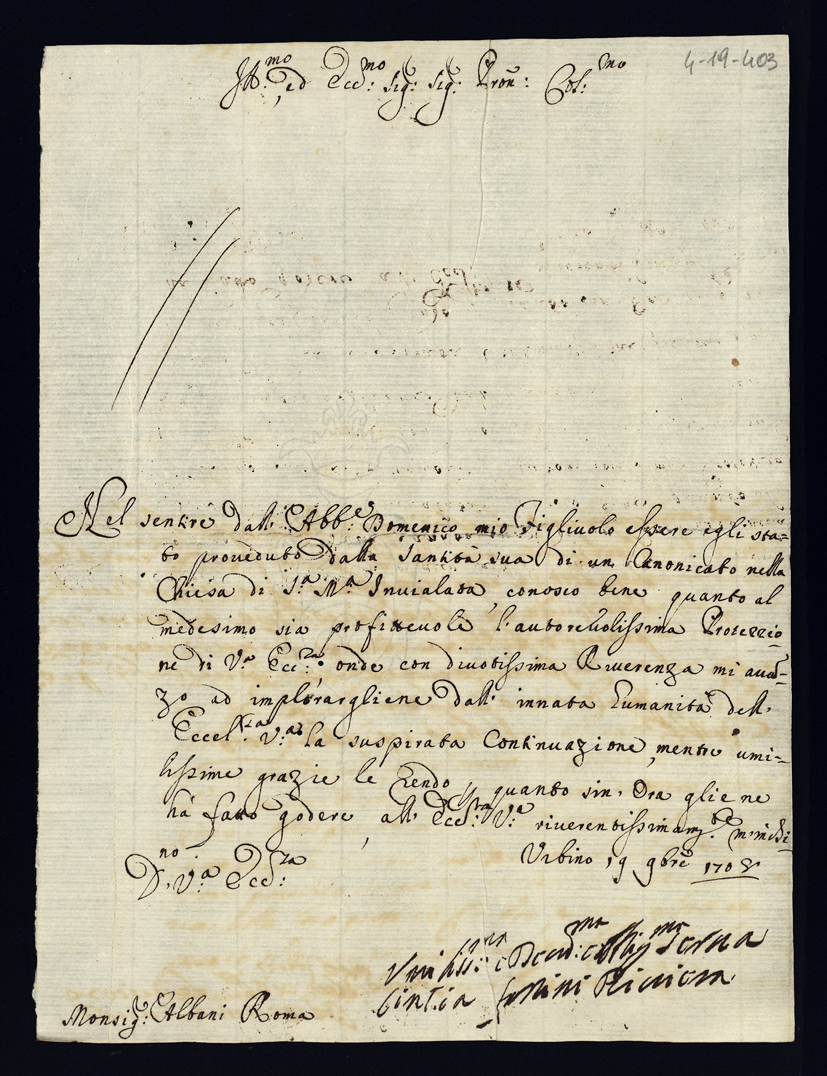 4-19-403
Ill.mo, ed Ecc.mo Sig: Sig: Pron: Col:mo
Nel sentire dall'Abb.e Domenico mio Figlivolo essere egli sta=
to proveduto dalla Santità sua di un Canonicato nella
Chiesa di S.a M.a Invialata, conosco bene quanto al
medesimo sia profittevole l'autorevolissima Protezzio=
ne di V.a Ecc:za onde con divotissima Riverenza mi avan=
zo ad implorargliene dall'innata Humanità dell'
Eccel:za V.a la suspirata Continuazione, mentre umi=
lissime grazie le Rendo, quanto sin'Ora gliene
hà fatto godere, all'Ecc:za V.a riverentissimam.te m'inchi=
no.
D. V.a Ecc:za
Urbino 19 9bre 1708
Umiliss:ma e Devot:ma Oblig:ma Serva
Cintia Riviera
Monsig: Albani Roma